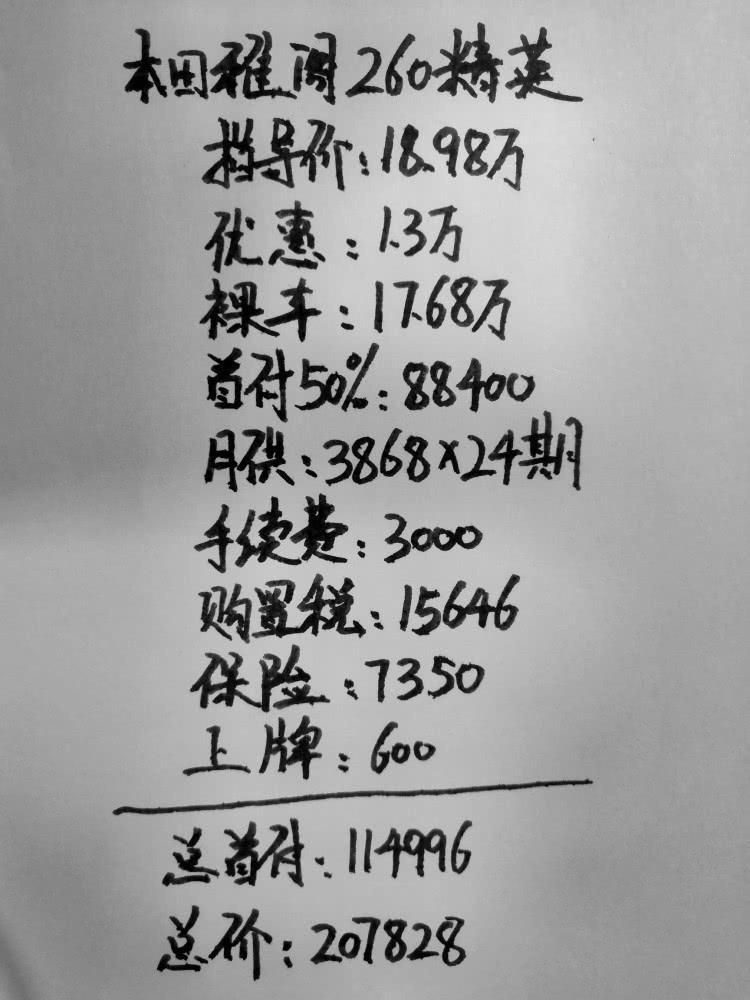 本田雅阁260精英
指导价:18.98万
优惠:1.3万
裸车:17.68万
首付50%:88400
月供:3868×24期
手续费:3000
购置税:15646
保险:7350
上牌:600
总首付:114996
总价:207828